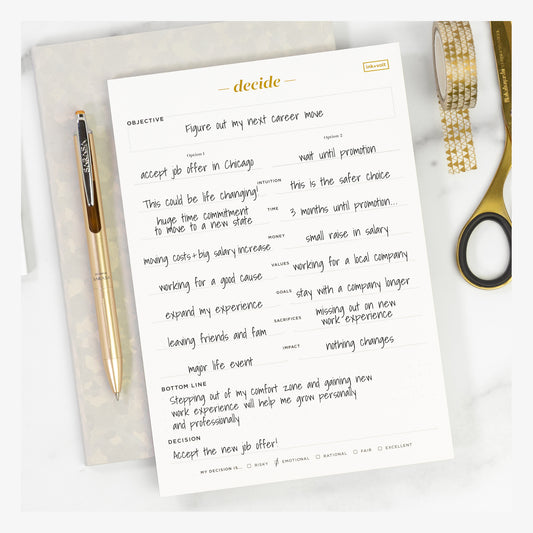 ink+volt
— decide —
OBJECTIVE
Figure out my next career move
Option 1
Option 2
accept job offer in Chicago
wait until promotion
INTUITION
This could be life changing!
this is the safer choice
TIME
huge time commitment
to move to a new state
3 months until promotion...
MONEY
moving costs + big salary increase
small raise in salary
VALUES
working for a good cause
working for a local company
GOALS
expand my experience
stay with a company longer
SACRIFICES
leaving friends and fam
missing out on new
work experience
IMPACT
major life event
nothing changes
BOTTOM LINE
Stepping out of my comfort zone and gaining new
work experience will help me grow personally
and professionally
DECISION
Accept the new job offer!
MY DECISION IS... RISKY EMOTIONAL RATIONAL FAIR EXCELLENT
SARASA